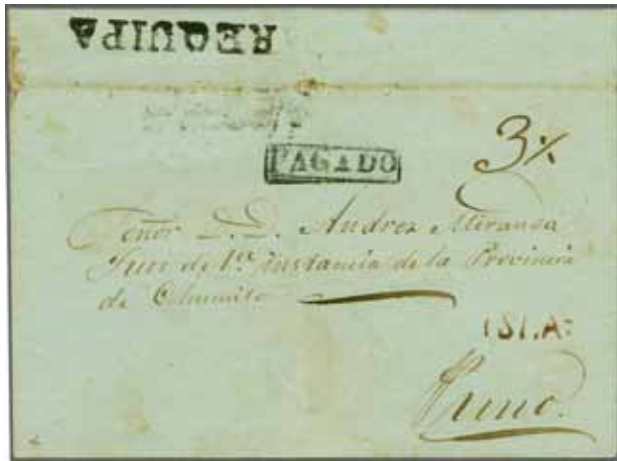 REQUIPA
PAGADO
3 ½
Señor D. D. Andrez Miranda
Juez de 1ª instancia de la Provincia
de Chucuito
ISLA:
Puno.